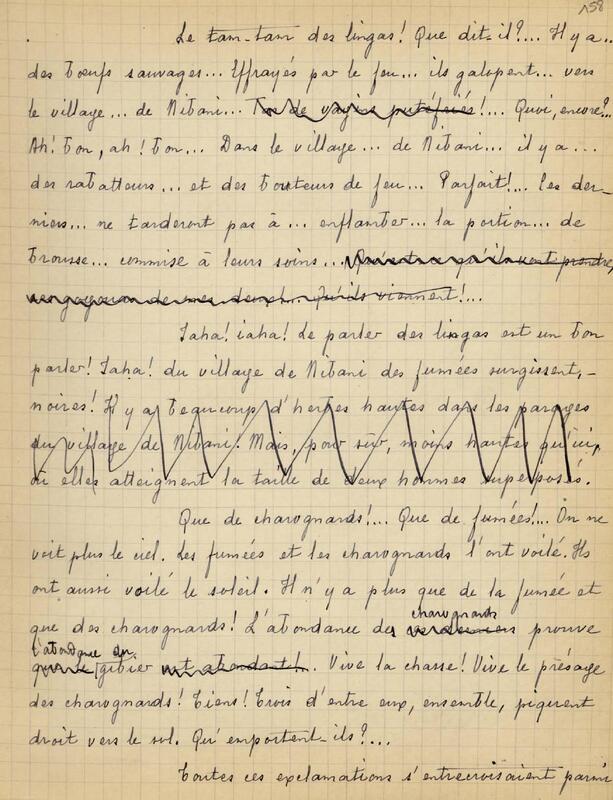 158
Le tam-tam des lingas! Que dit-il?... Il y a...
des bœufs sauvages... Effrayés par le feu... ils galopent... vers
le village... de Nibani... Tas de vagins putréfiés!... Quoi, encore?...
Ah! bon, ah! bon... Dans le village... de Nibani... il y a...
des rabatteurs... et des bouteurs de feu... Parfait!... Ces der-
niers... ne tarderont pas à... enflamber... la portion... de
brousse... commise à leurs soins... qu'ils vont prendre,
qu'ils viennent!...
Iaha! iaha! Le parler des lingas est un bon
parler! Iaha! du village de Nibani des fumées surgissent, -
noires! Il y a beaucoup d'herbes hautes dans les parages
du village de Nibani. Mais, pour sûr, moins hautes qu'ici,
où elles atteignent la taille de deux hommes superposés.
Que de charognards!... Que de fumées!... On ne
voit plus le ciel. Les fumées et les charognards l'ont voilé. Ils
ont aussi voilé le soleil. Il n'y a plus que de la fumée et
que des charognards! L'abondance des charognards prouve
l'abondance du gibier est abondant!. Vive la chasse! Vive le présage
des charognards! Tiens! Trois d'entre eux, ensemble, piquent
droit vers le sol. Qu'emportent-ils?...
Toutes ces exclamations s'entrecroisaient parmi